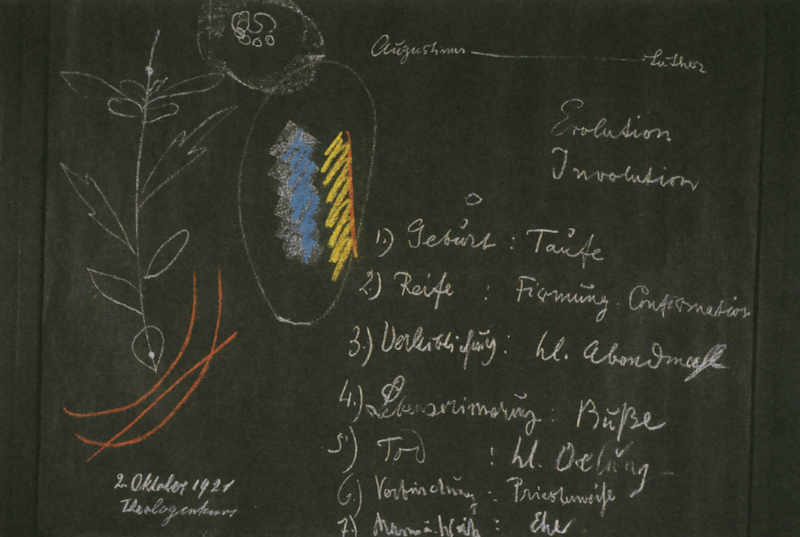 Augustinus — Luther
Evolution
Involution
1.) Geburt : Taufe
2.) Reife : Firmung. Confirmation
3.) Verleiblichung : hl. Abendmahl
4.) Lebenserinnerung : Buße
5.) Tod : hl. Oelung
6.) Vorbereitung : Priesterweihe
7.) Mann u. Weib : Ehe
2. Oktober 1921
Theologenkurs